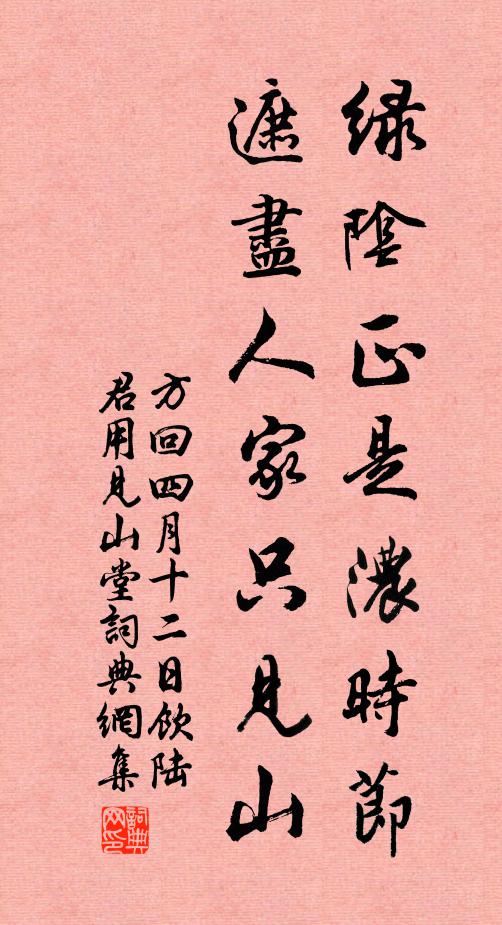 緑陰正是濃時節
遮盡人家只見山
方回四月十二日飲陸
君用見山堂詞典網集
詞典
网印